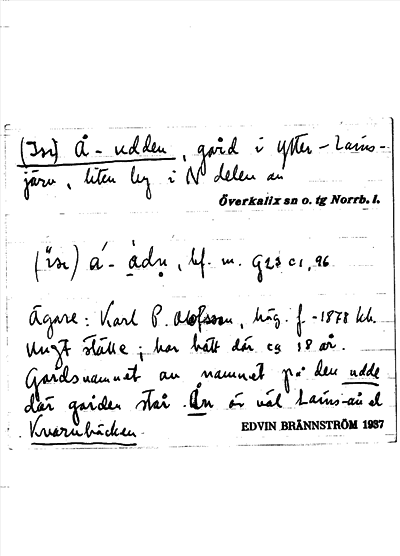 (Isr) Å-udden, gård i Ytter-Lains-
järv, liten by i N delen av
Överkalix sn o. tg Norrb. l.
(ïsr) á-àdṇ, bf. m. G23 c1, 96
Ägare: Karl P. Olofsson, häg. f-1878 kh.
Ungt ställe; har bått där ca 18 år.
Gårdsnamnet av namnet på den udde
där gården står. Ån är väl Lains-ån el
Kvarnbäcken.
EDVIN BRÄNNSTRÖM 1937